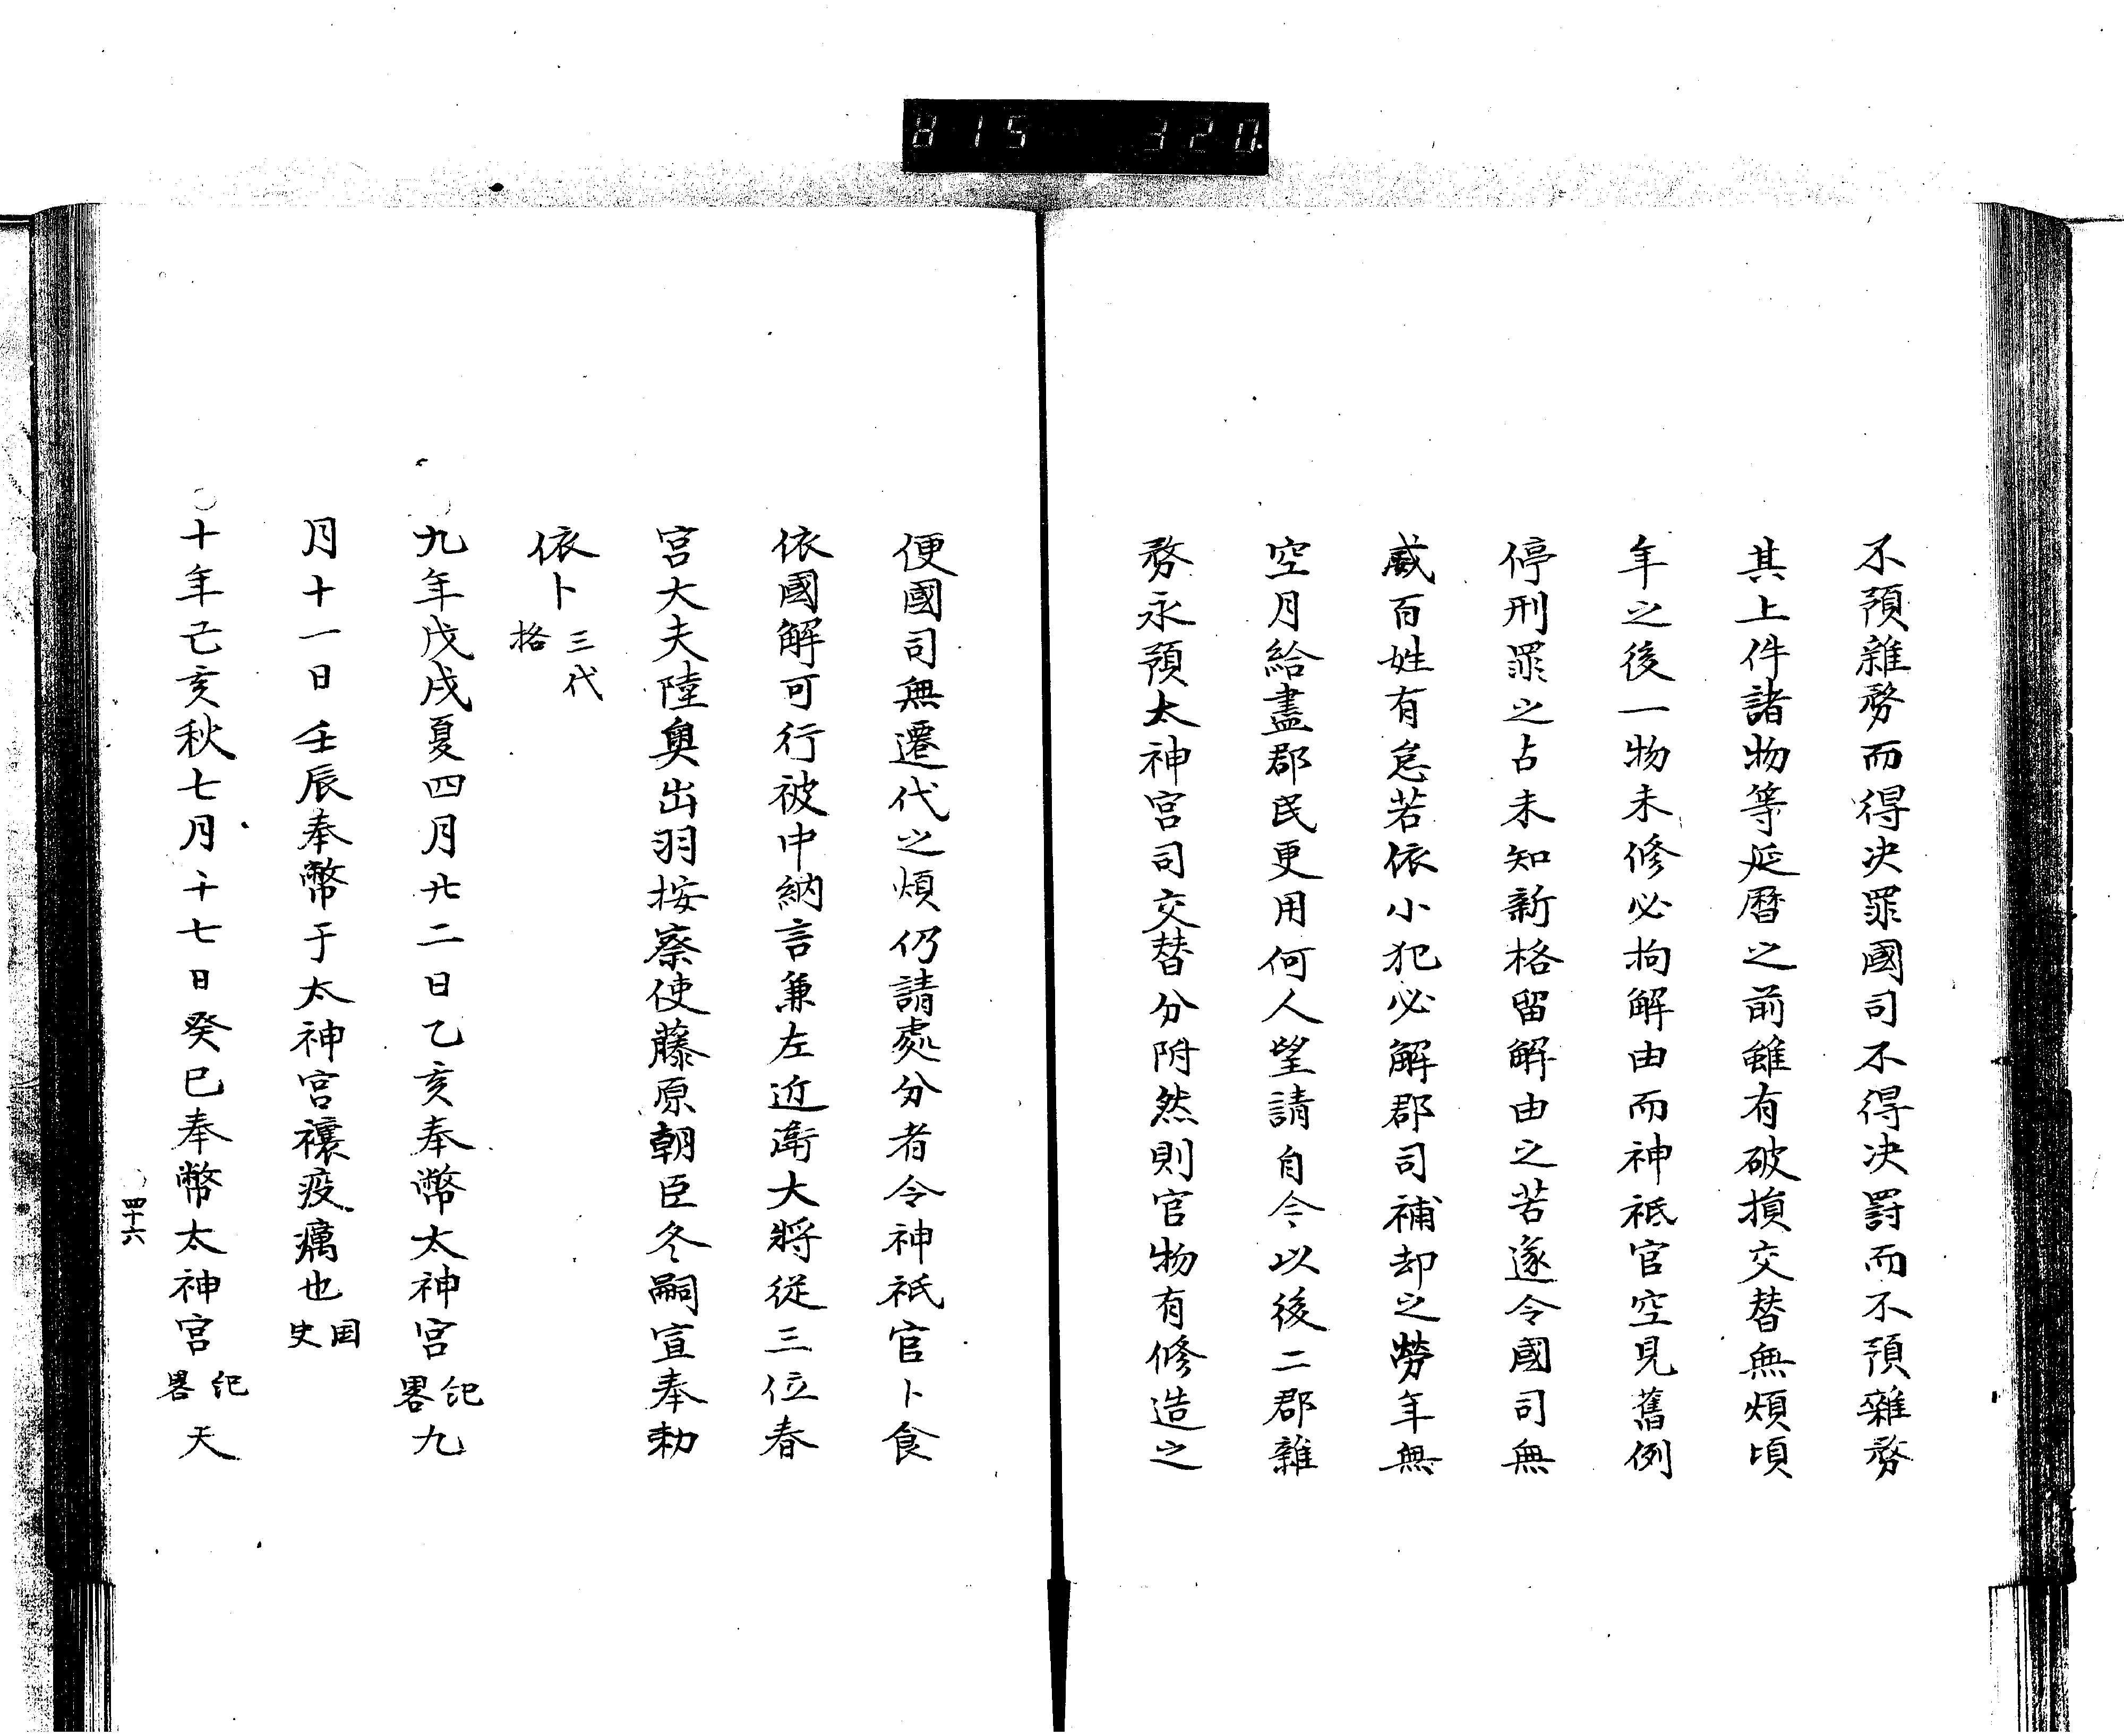 815 320.
不預雜務而得决罪國司不得决罸而不預雜務
其上件諸物等延暦之前雖有破損交替無煩頃
年之後一物未修必拘解由而神祇官空見舊例
停刑罪之占未知新格留解由之苦遂令國司無
威百姓有怠若依小犯必解郡司補却之勞年無
空月給盡郡民更用何人望請自今以後二郡雜
務永預太神宮司交替分附然則官物有修造之
便國司無遷代之煩仍請處分者令神祇官卜食
依國解可行被中納言兼左近衛大將從三位春
宮大夫陸奥出羽按察使藤原朝臣冬嗣宣奉勅
依卜 三代格
九年戊戌夏四月廾二日乙亥奉幣太神宮 紀畧 九
月十一日壬辰奉幣于太神宮禳疫癘也 国史
十年己亥秋七月十七日癸巳奉幣太神宮 紀畧 天
四十六